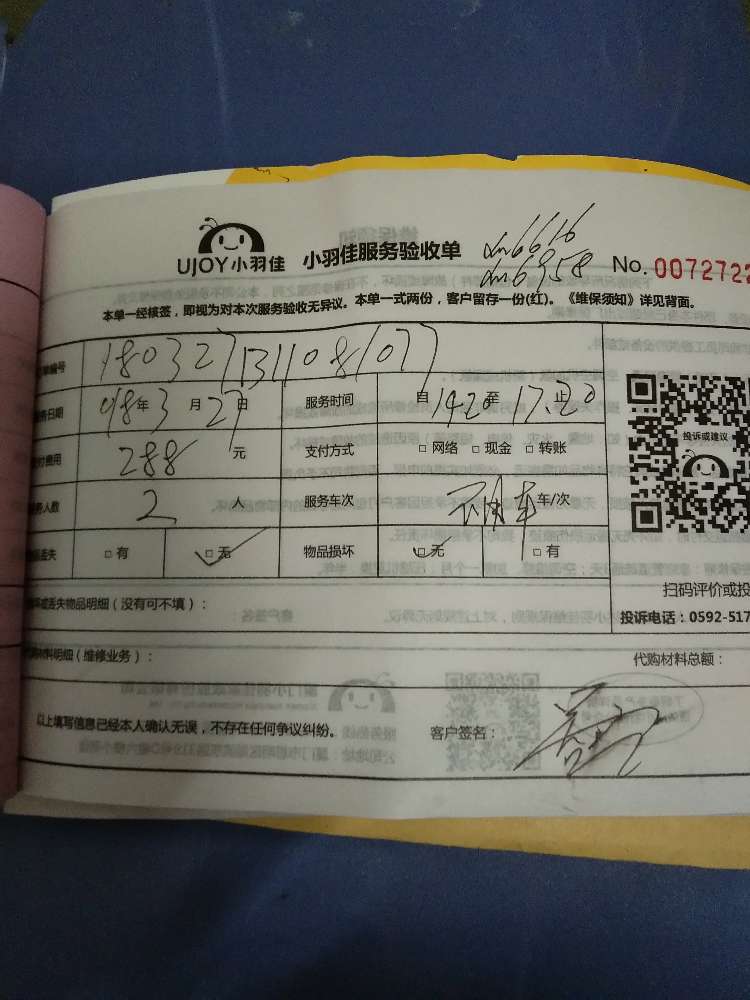 UJOY小羽佳 小羽佳服务验收单 No. 0072722
6616
6958
本单一经核签，即视为对本次服务验收无异议。本单一式两份，客户留存一份(红)。《维保须知》详见背面。
单编号 18032713110810
务日期 年 3 月 27 日 服务时间 自 14.20 至 17.20 止
付费用 288 元 支付方式 □ 网络 □ 现金 □ 转账
务人数 2 人 服务车次 车/次
物品丢失 □ 有 □ 无 物品损坏 □ 无 □ 有
投诉或建议
扫码评价或投
坏或丢失物品明细（没有可不填）： 投诉电话：0592-517
材料明细（维修业务）： 代购材料总额：
以上填写信息已经本人确认无误，不存在任何争议纠纷。 客户签名：